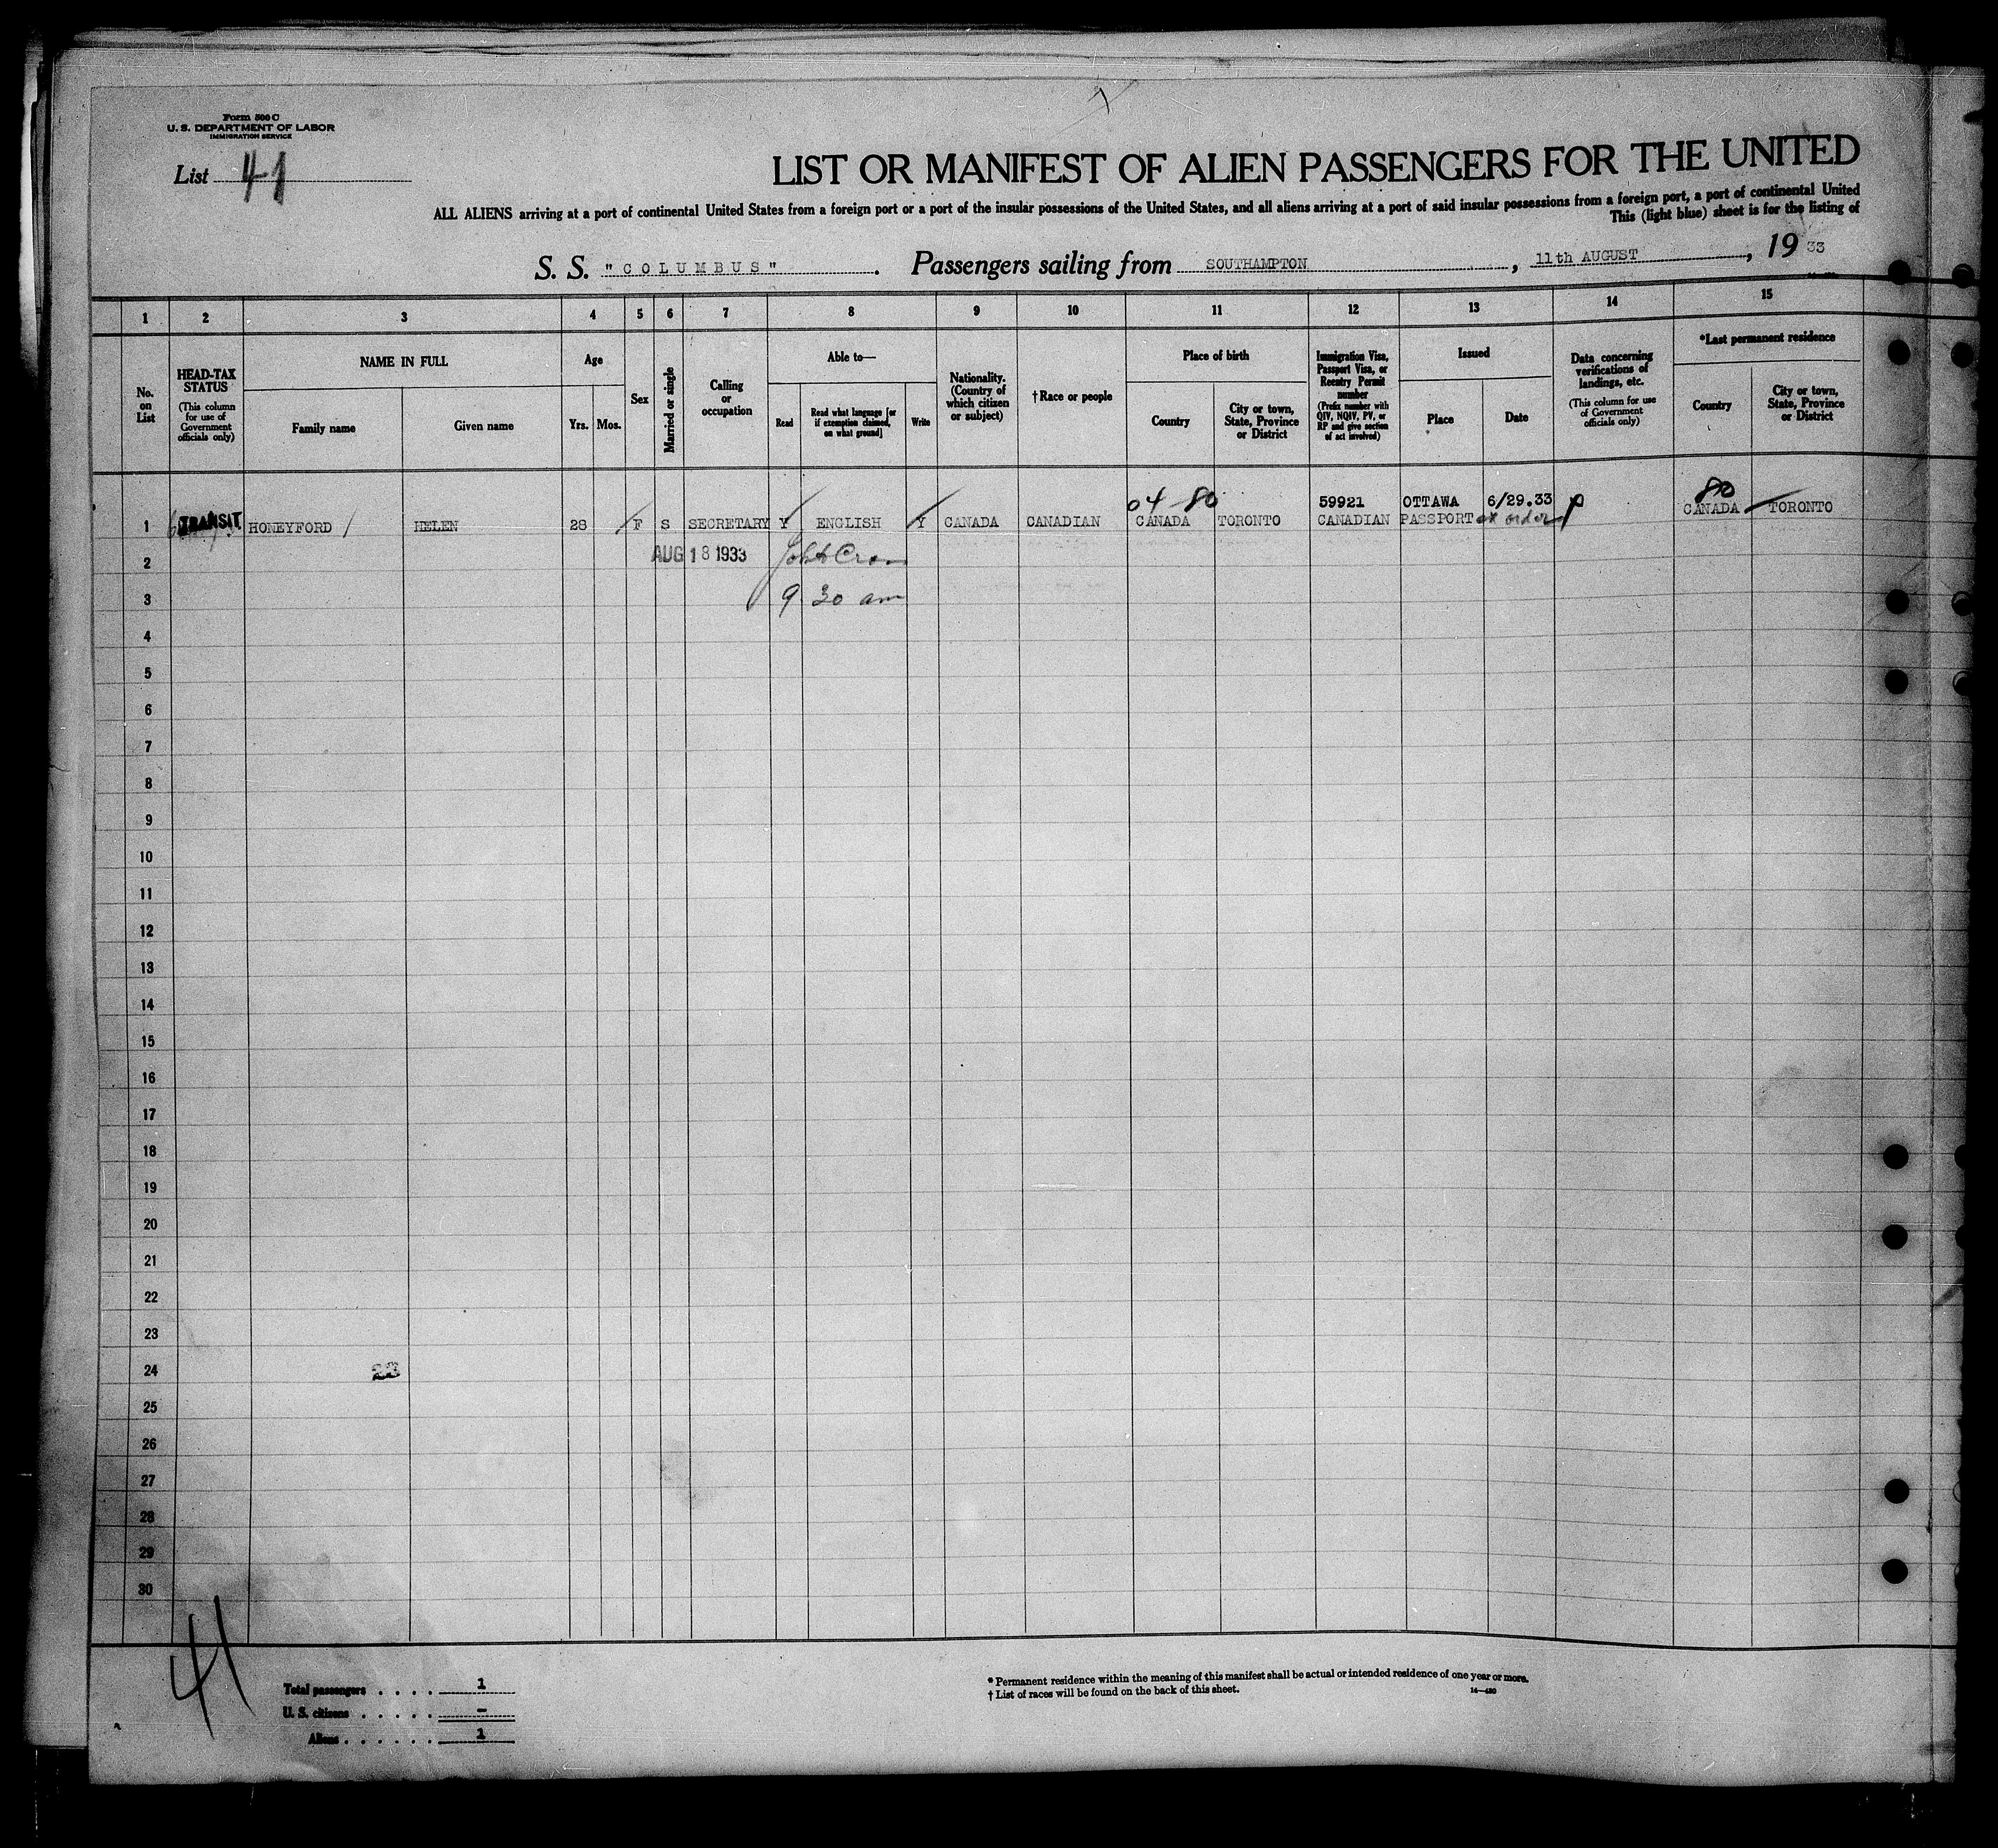 Form 500 C
U. S. DEPARTMENT OF LABOR
IMMIGRATION SERVICE
List 41
LIST OR MANIFEST OF ALIEN PASSENGERS FOR THE UNITED
ALL ALIENS arriving at a port of continental United States from a foreign port or a port of the insular possessions of the United States, and all aliens arriving at a port of said insular possessions from a foreign port, a port of continental United
This (light blue) sheet is for the listing of
S. S. "COLUMBUS" . Passengers sailing from SOUTHAMPTON , 11th AUGUST , 19 33
1 2 3 4 5 6 7 8 9 10 11 12 13 14 15
No. on List
HEAD-TAX STATUS (This column for use of Government officials only)
NAME IN FULL
Family name
Given name
Age
Yrs. Mos.
Sex
Married or single
Calling or occupation
Able to—
Read
Read what language [or if exemption claimed, on what ground]
Write
Nationality. (Country of which citizen or subject)
† Race or people
Place of birth
Country
City or town, State, Province or District
Immigration Visa, Passport Visa, or Reentry Permit number (Prefix number with QIV, NQIV, PV, or RP and give section of act involved)
Issued
Place
Date
Data concerning verifications of landings, etc. (This column for use of Government officials only)
*Last permanent residence
Country
City or town, State, Province or District
04-80 59921 OTTAWA 6/29.33 80
1 TRANSIT HONEYFORD HELEN 28 F S SECRETARY Y ENGLISH Y CANADA CANADIAN CANADA TORONTO CANADIAN PASSPORT ex order CANADA TORONTO
2 AUG 18 1933
3 9 30 am
4
5
6
7
8
9
10
11
12
13
14
15
16
17
18
19
20
21
22
23
24 23
25
26
27
28
29
30
41
Total passengers . . . . 1
U. S. citizens . . . . . –
Aliens . . . . . . 1
* Permanent residence within the meaning of this manifest shall be actual or intended residence of one year or more.
† List of races will be found on the back of this sheet. 14—430